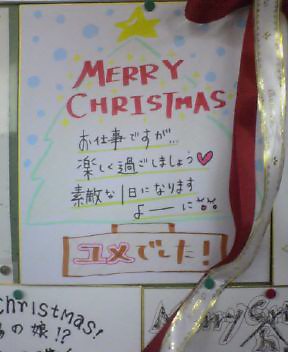 MERRY
CHRISTMAS
お仕事ですが…
楽しく過ごしましょう♥
素敵な1日になります
よーに
ユメでした!
Christmas!
の娘!?
Merry